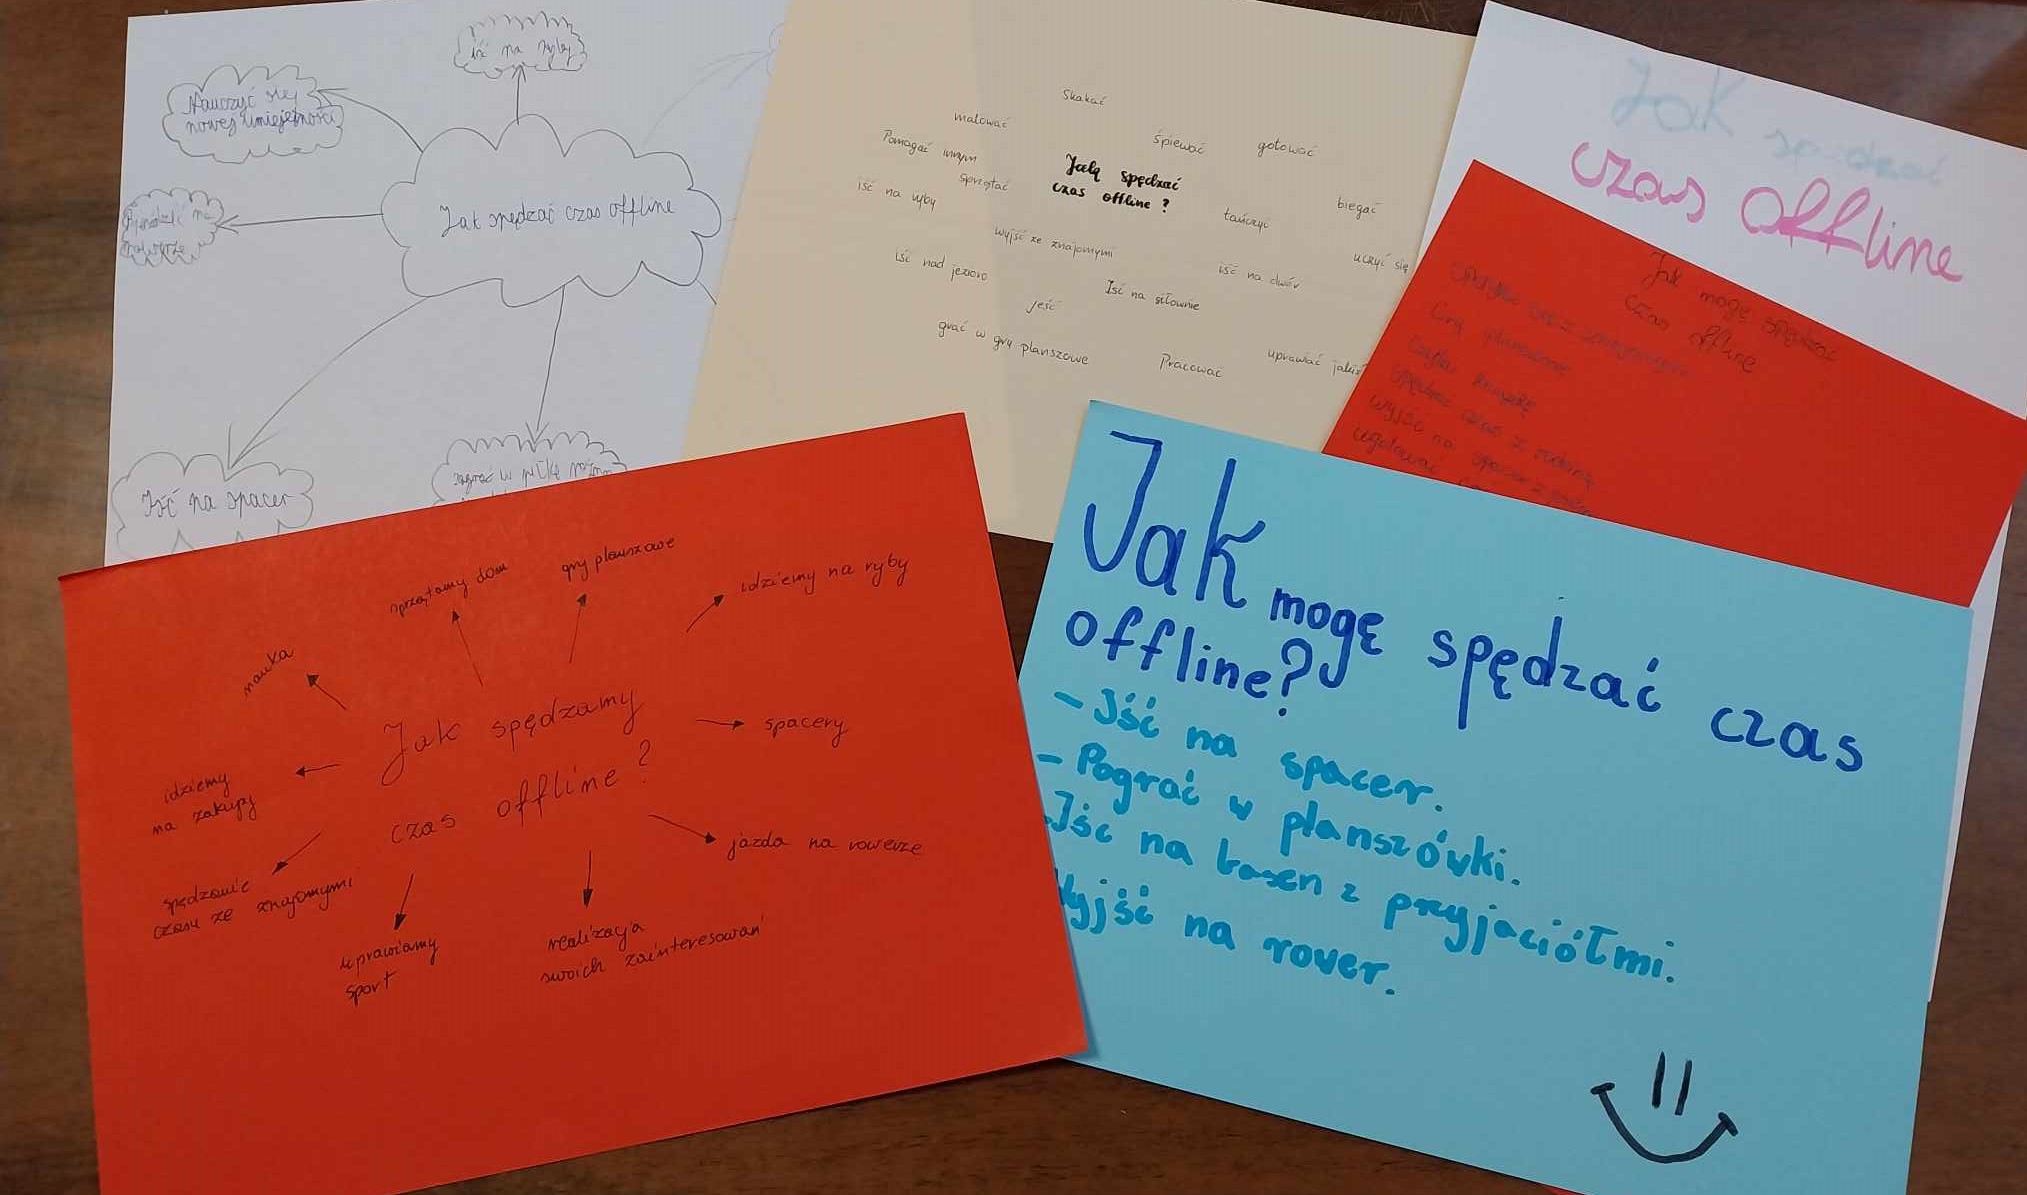 iść na ryby
Nauczyć się
nowej umiejętności
Jak spędzać czas offline
Iść na spacer
zagrać w piłkę
Skakać
malować
śpiewać
gotować
Pomagać innym
sprzątać
Jalę spędzać
czas offline ?
iść na ryby
biegać
tańczyć
wyjść ze znajomymi
uczyć się
iść nad jezioro
iść na dwór
Iść na siłownie
jeść
grać w gry planszowe
Pracować
uprawiać jakiś
Jak spędzać
czas offline
Jak mogę spędzać
czas offline
Gry planszowe
spędzać czas z rodziną
wyjść na spacer z
ugotować
sprzątamy dom
gry planszowe
idziemy na ryby
nauka
Jak spędzamy
czas offline ?
spacery
idziemy
na zakupy
jazda na rowerze
spędzanie
czasu ze znajomymi
uprawiamy
sport
realizacja
swoich zainteresowań
Jak mogę spędzać czas
offline?
- Iść na spacer.
- Pograć w planszówki.
Iść na basen z przyjaciółmi.
Wyjść na rower.